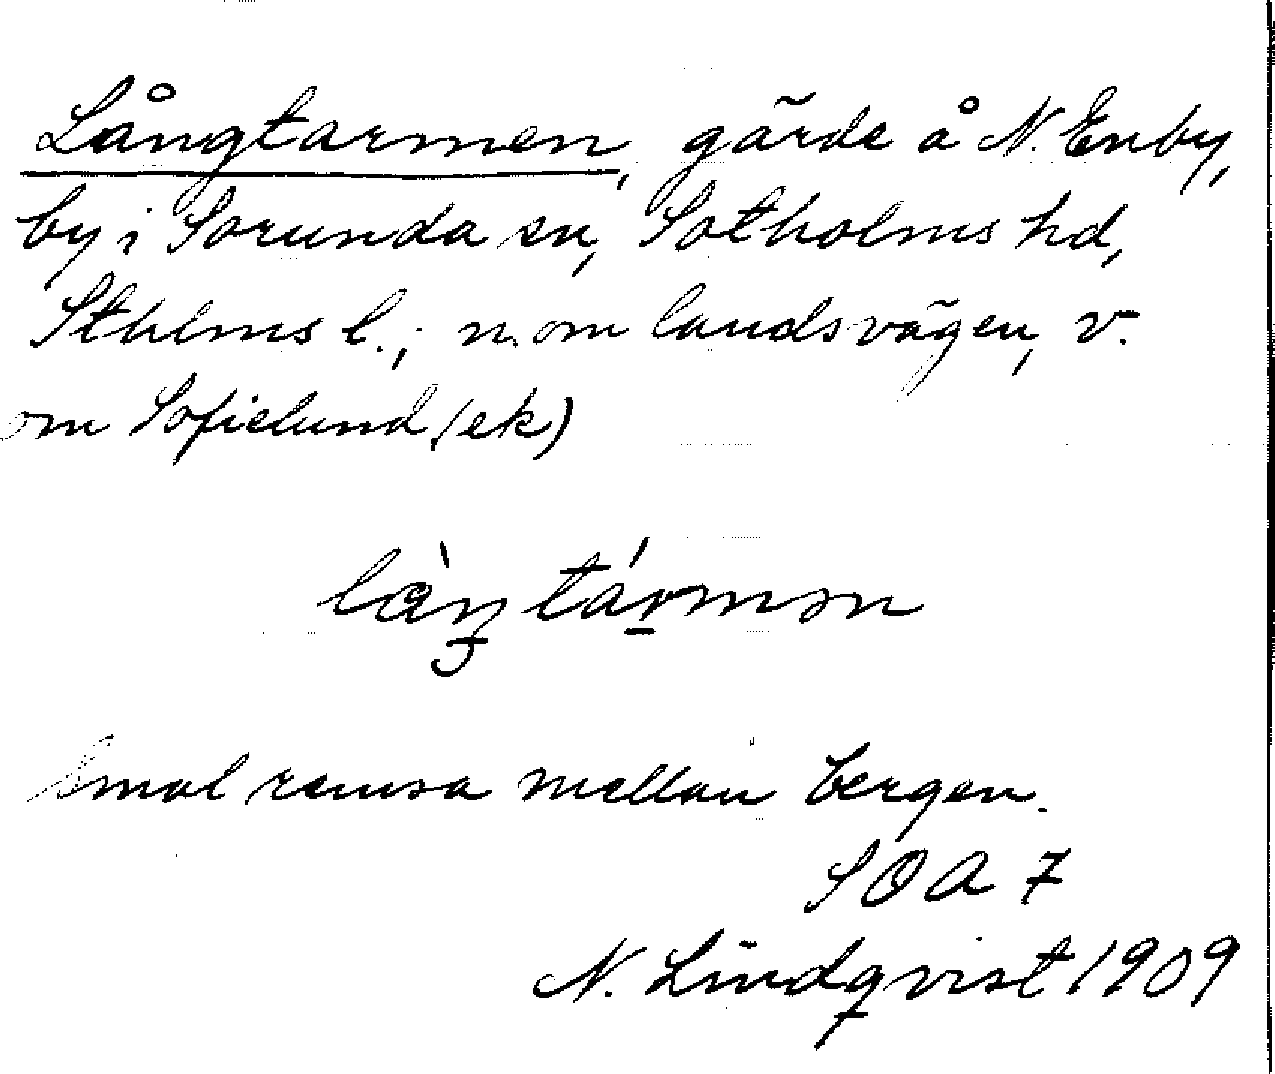 Långtarmen, gärde å N. Enby,
by i Sorunda sn, Sotholms hd,
Sthlms l.; n. om landsvägen, v.
om Sofielund (ek)
Smal remsa mellan bergen.
SOA 7
N. Lindqvist 1909